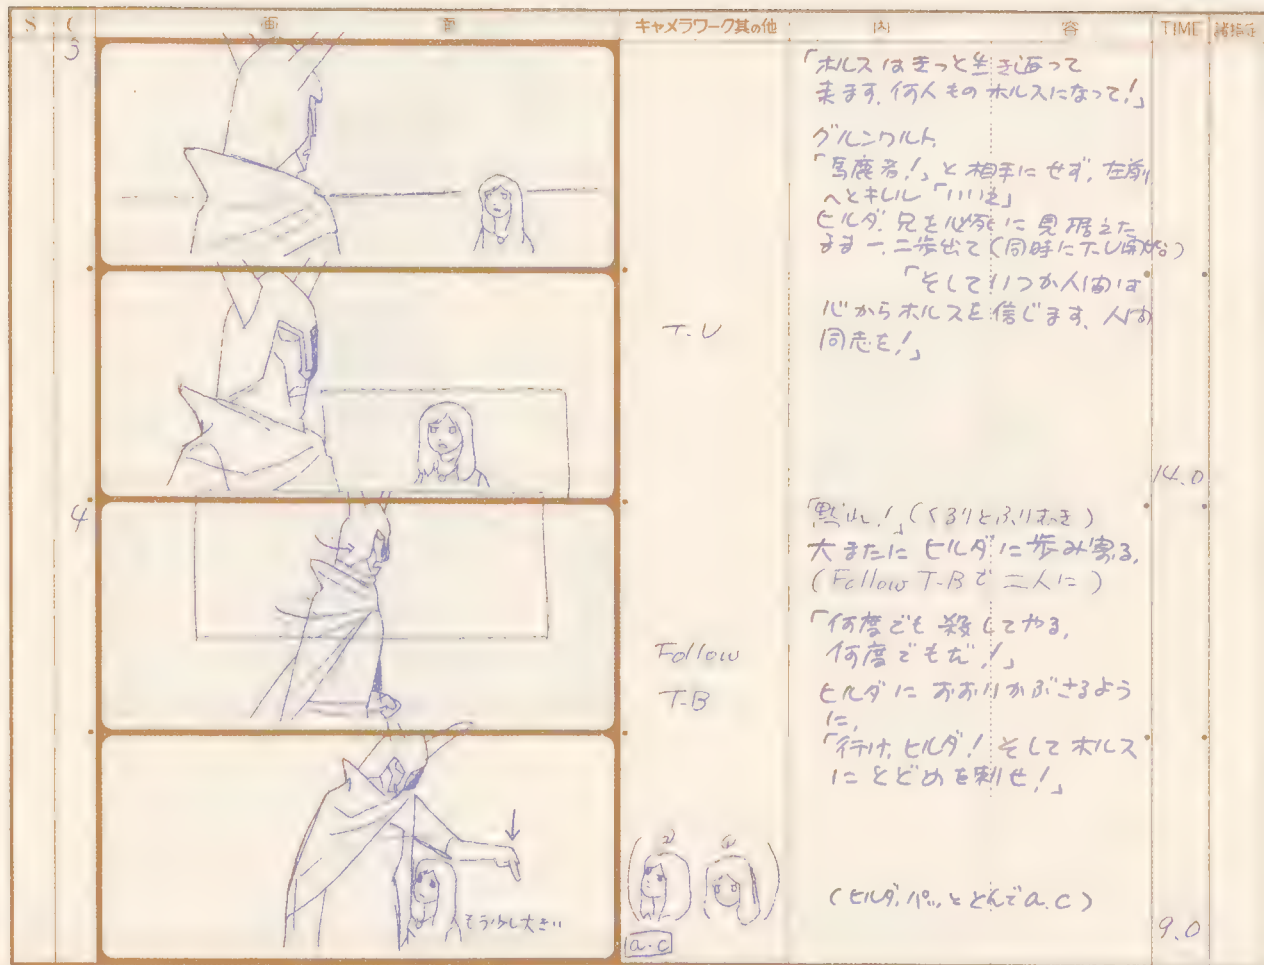 S C 画面 キャメラワーク其の他 内容 TIME 諸指定
3
「ホルスはきっと生き返って
来ます、何人ものホルスになって!」
グルンワルト、
「馬鹿者!」と相手にせず、左前
へとキレル「いいえ」
ヒルダ、兄を必死に見据えた
まま一、二歩出て(同時にT.U開始)
「そしていつか人間は
T.U
心からホルスを信じます、人間
同志を!」
14.0
4
「黙れ!」(くるりとふりむき)
大またにヒルダに歩み寄る。
(Follow T-Bで二人に)
「何度でも殺してやる、
何度でもだ!」
Follow
T-B
ヒルダにおおいかぶさるよう
に、
「行け、ヒルダ!そしてホルス
にとどめを刺せ!」
もう少し大きい
a.c
(ヒルダ、パッととんでa.c)
9.0